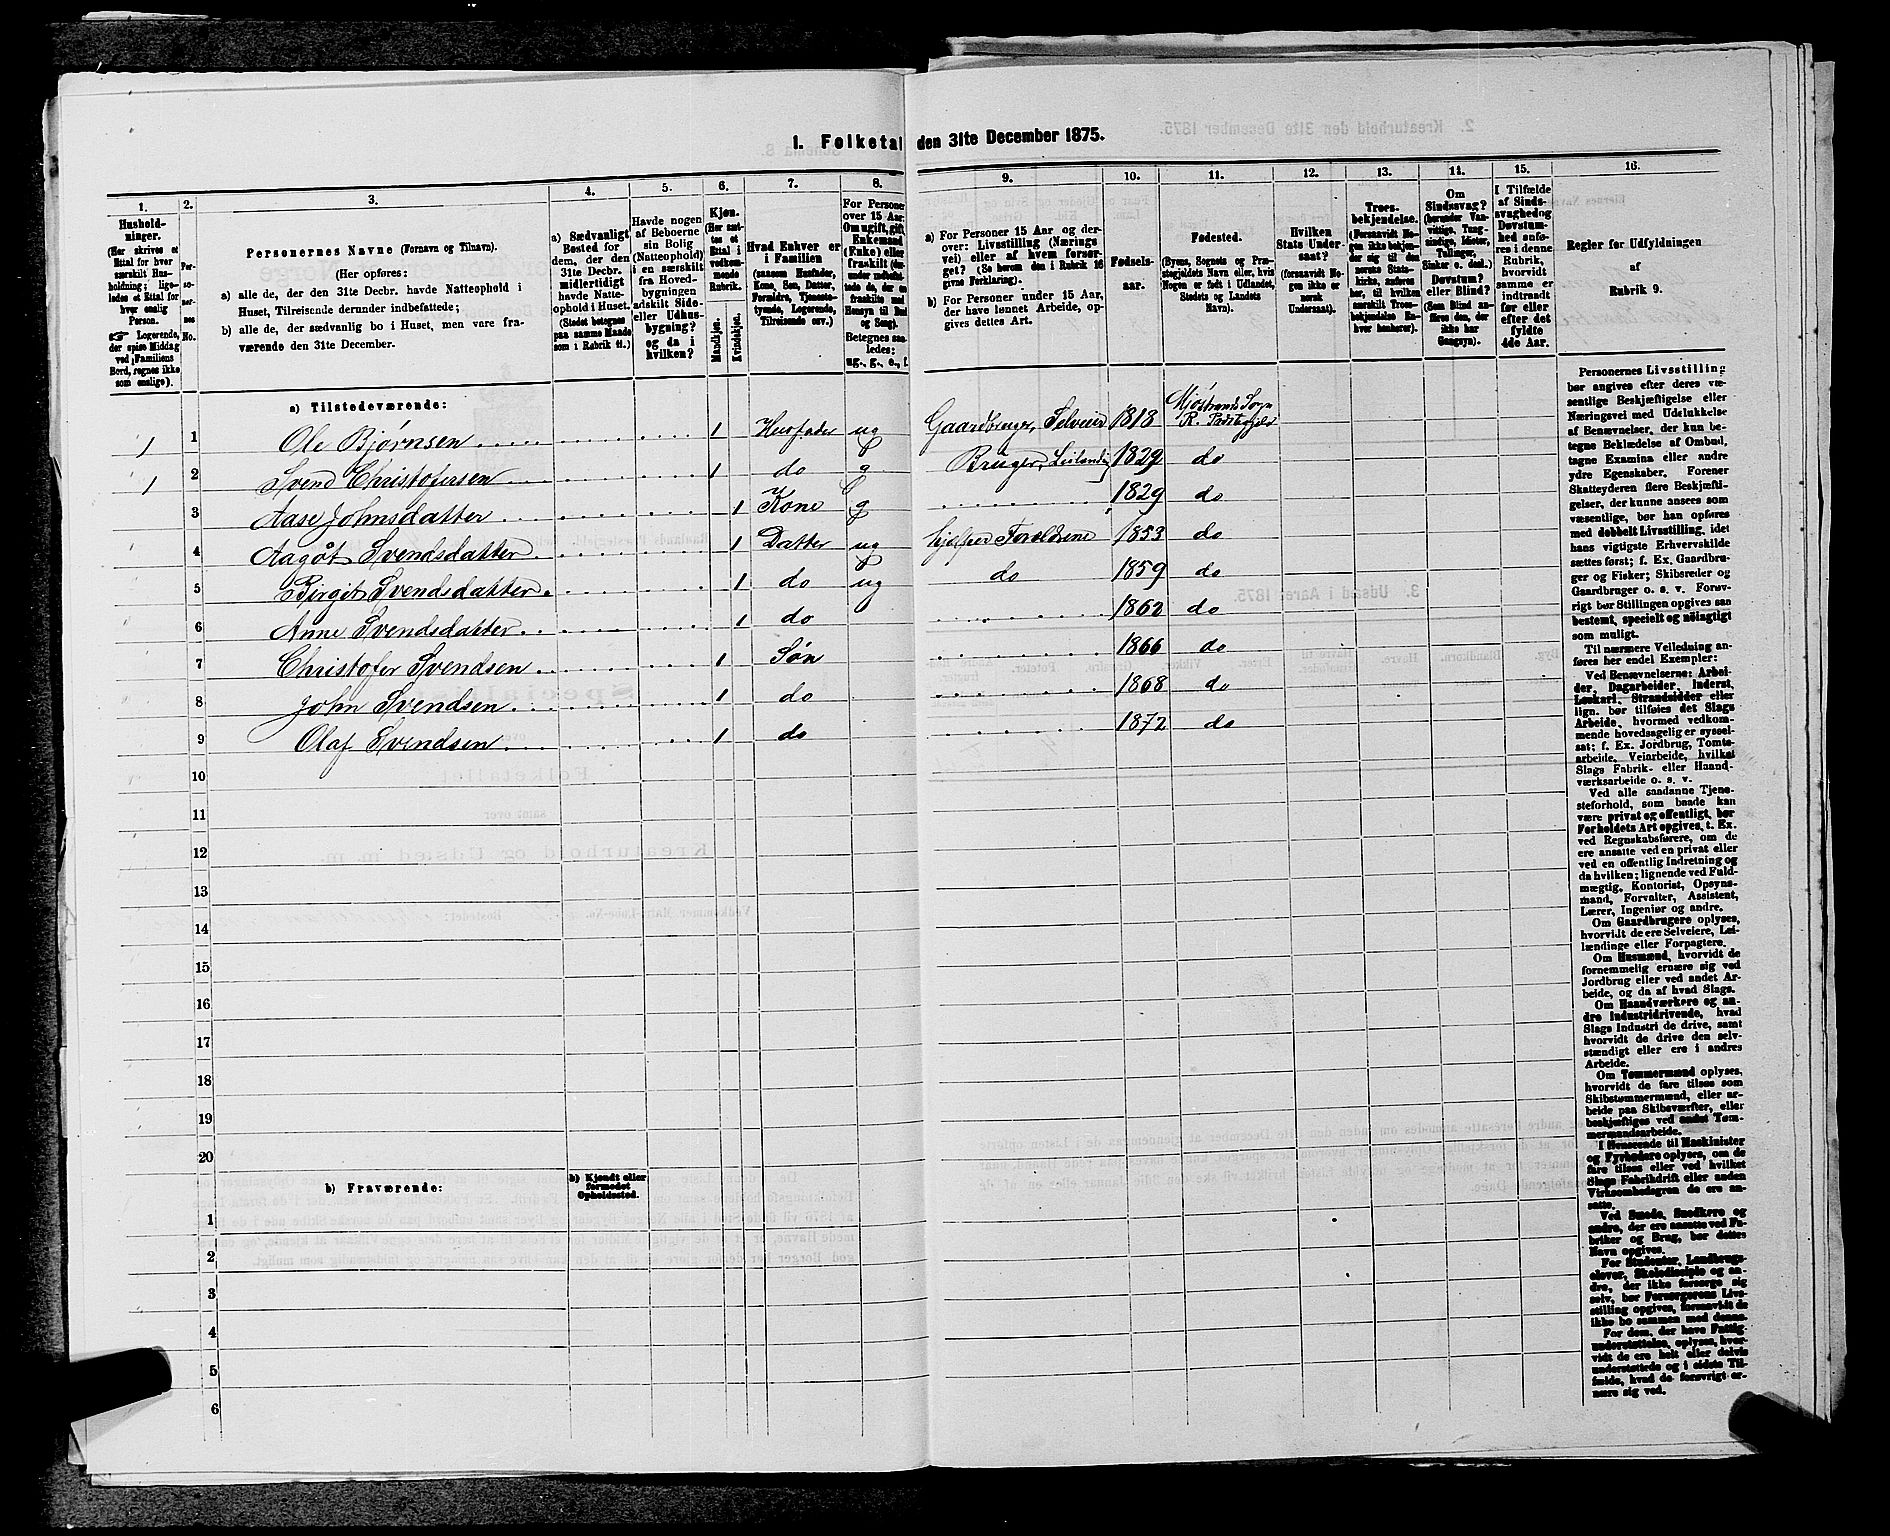 1. Folketal den 31te December 1875.
1. 2. 3. 4. 5. 6. 7. 8. 9. 10. 11. 12. 13. 14. 15. 16.
Hushold-
ninger.
(Her skrives et
Ettal for hver
særskilt Hus-
holdning; lige-
ledes et Ettal for
hver enslig
Person.
☛ Logerende,
der spise Middag
ved Familiens
Bord, regnes ikke
som enslige).
Per-
so-
ner-
nes
No.
Personernes Navne (Fornavn og Tilnavn).
(Her opføres:
a) alle de, der den 31te Decbr. havde Natteophold i
Huset, Tilreisende derunder indbefattede;
b) alle de, der sædvanlig bo i Huset, men vare fra-
værende den 31te December.
a) Sædvanligt
Bosted for
dem, der den
31te Decbr.
midlertidigt
havde Natte-
ophold i Huset.
(Stedet betegnes
paa samme Maade
som i Rubrik 11.)
Havde nogen
af Beboerne
sin Bolig
(Natteophold)
i en særskilt
fra Hoved-
bygningen
adskilt Side-
eller Udhus-
bygning?
og da i
hvilken?
Kjøn.
(Her sæt-
tes et
Ettal i
vedkom-
mende
Rubrik.
Mandkjøn.
Kvindekjøn.
Hvad Enhver er
i Familien
(saasom Husfader,
Kone, Søn, Datter,
Forældre, Tjeneste-
tyende, Logerende,
Tilreisende osv.)
For Personer
over 15 Aar:
Om ugift, gift,
Enkemand
(Enke) eller
fraskilt
Betegnes saa-
ledes:
ug., g., e., f.
a) For Personer 15 Aar og der-
over: Livsstilling (Nærings
vei) eller af hvem forsør-
get? (Se herom den i Rubrik 16
givne Forklaring).
b) For Personer under 15 Aar,
der have lønnet Arbeide, op-
gives dettes Art.
Fødsels-
aar.
Fødested.
(Byens, Sognets og Præ-
stegjeldets Navn eller, hvis
Nogen er født i Udlandet,
Stedets og Landets
Navn).
Hvilken
Stats Under-
saat?
(forsaavidt No-
gen ikke er
norsk
Undersaat).
Troes-
bekjendelse.
(Forsaavidt No-
gen ikke bekjen-
der sig til den
norske Stats-
kirke, anføres
her, til hvilken
særskilt Troes-
bekjendelse En-
hver henhører).
Om
Sindssvag?
(herunder Van-
vittige, Tung-
sindige, Idioter,
Tullinger,
Sinker o. desl.)
Døvstum?
eller Blind?
(Som Blind an-
føres den, der
ikke har
Gangsyn).
I Tilfælde
af Sinds-
svaghed og
Døvstum-
hed anfø-
res i denne
Rubrik,
hvorvidt
samme er
indtraadt
før eller
efter det
fyldte
4de Aar.
Regler for Udfyldningen
af
Rubrik 9.
a) Tilstedeværende:
1 1 Ole Bjørnsen 1 Husfader ug Gaardbruger, Selveier 1818 Mjøstrands Sogn
1 2 Svend Christofersen 1 do g Bruger, Leilænding 1829 do
3 Aase Johnsdatter 1 Kone g 1829 do
4 Aagôt Svendsdatter 1 Datter ug hjelper Forældrene 1853 do
5 Birgit Svendsdatter 1 do ug do 1859 do
6 Anne Svendsdatter 1 do 1862 do
7 Christofer Svendsen 1 Søn 1866 do
8 John Svendsen 1 do 1868 do
9 Olaf Svendsen 1 do 1872 do
10
11
12
13
14
15
16
17
18
19
20
b) Fraværende:
b) Kjendt eller
formodet
Opholdssted.
1
2
3
4
5
6
Personernes Livsstilling
bør angives efter deres væ-
sentlige Beskjæftigelse eller
Næringsvei med Udelukkelse
af Benævnelser, der kun be-
tegne Beklædelse af Ombud,
tagne Examina eller andre
ydre Egenskaber. Forener
Skatteyderen flere Beskjæfti-
gelser, der kunne ansees som
væsentlige, bør han opføres
med dobbelt Livsstilling, idet
hans vigtigste Erhvervskilde
sættes først; f. Ex. Gaardbru-
ger og Fisker; Skibsreder og
Gaardbruger o. s. v. Forøv-
rigt bør Stillingen opgives saa
bestemt, specielt og nøiagtigt
som muligt.
Til nærmere Veiledning an-
føres her endel Exempler:
Ved Benævnelserne: Arbei-
der, Dagarbeider, Inderst,
Løskarl, Strandsidder eller
lign. bør tilføies det Slags
Arbeide, hvormed vedkom-
mende hovedsagelig er syssel-
sat; f. Ex. Jordbrug, Tomte-
arbeide, Veiarbeide, hvilket
Slags Fabrik- eller Haand-
værksarbeide o. s. v.
Ved alle saadanne Tjene-
steforhold, som baade kan
være privat og offentligt, bør
Forholdets Art opgives, t. Ex.
ved Regnskabsførere, om de
ere ansatte ved en privat eller
ved en offentlig Indretning og
da hvilken; lignende ved Fuld-
mægtig, Kontorist, Opsyns-
mand, Forvalter, Assistent,
Lærer, Ingeniør og andre.
Om Gaardbrugere oplyses,
hvorvidt de ere Selveiere, Lei-
lændinge eller Forpagtere.
Om Husmænd, hvorvidt de
fornemmelig ernære sig ved
Jordbrug eller ved andet Ar-
beide, og da af hvad Slags.
Om Haandværkere og an-
dre Industridrivende, hvad
Slags Industri de drive, samt
hvorvidt de drive den selv-
stændigt eller ere i andres
Arbeide.
Om Tømmermænd oplyses,
hvorvidt de fare tilsøs som
Skibstømmermænd, eller ar-
beide paa Skibsværfter, eller
beskjæftiges ved andet Tøm-
mermandsarbeide.
I Henseende til Maskinister
og Fyrbødere oplyses, om de
fare tilsøs eller ved hvilket
Slags Fabrikdrift eller anden
Virksomhedsgren de ere an-
satte.
Ved Smede, Snedkere og
andre, der ere ansatte ved Fa-
briker og Brug, bør dettes
Navn opgives.
For Studenter, Landbrugs-
elever, Skoledisciple og an-
dre, der ikke forsørge sig
selv, bør Forsørgerens Livs-
stilling opgives, forsaavidt de
ikke bo sammen med denne.
For dem, der have Fattig-
understøttelse, oplyses, hvor-
vidt de ere helt eller delvis
understøttede og i sidste Til-
fælde, hvad de forøvrigt er-
nære sig ved.